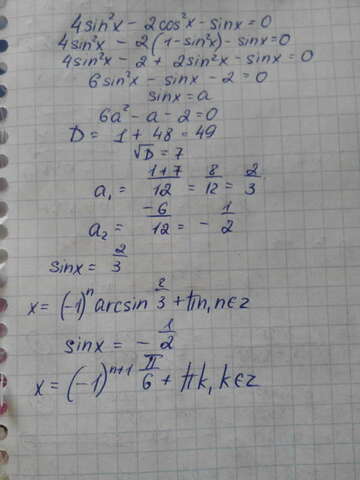 4sin²x - 2cos²x - sinx = 0
4sin²x - 2(1-sin²x) - sinx = 0
4sin²x - 2 + 2sin²x - sinx = 0
6sin²x - sinx - 2 = 0
sinx = a
6a² - a - 2 = 0
D = 1 + 48 = 49
√D = 7
a₁ = (1+7)/12 = 8/12 = 2/3
a₂ = -6/12 = -1/2
sinx = 2/3
x = (-1)ⁿ arcsin 2/3 + πn, n∈z
sinx = -1/2
x = (-1)ⁿ⁺¹ π/6 + πk, k∈z